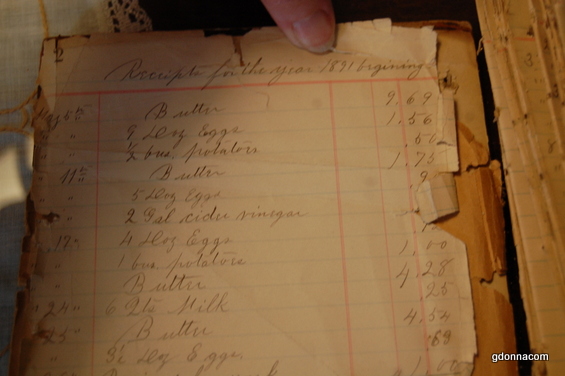 Receipts for the year 1891 begining
5th Butter 9,69
" 9 Doz Eggs 1,56
" ½ bus. potatoes 50
11th Butter 1,75
" 5 Doz Eggs 9
" 2 Gal cider vinegar
17" 4 Doz Eggs
" 1 bus. potatoes 1,00
" Butter 4,28
" 24" 6 Qts Milk 25
25" Butter 4,54
" Doz Eggs 69
1,00
gdonnacom